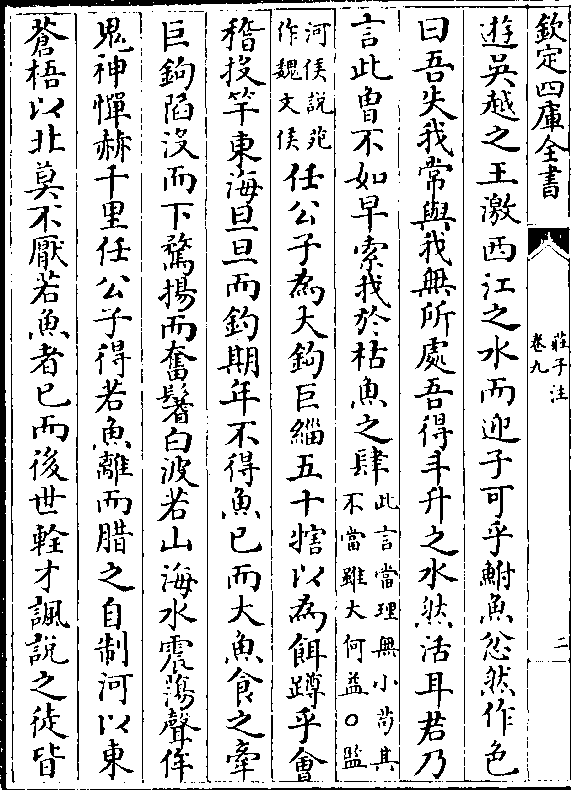 欽定四庫全書
莊子注
卷九
二
遊吳越之王激西江之水而迎子可乎鮒魚忿然作色
曰吾失我常與我無所處吾得斗升之水然活耳君乃
言此曾不如早索我於枯魚之肆
此言當理無小苟其
不當雖大何益〇監
河侯說苑
作魏文侯
任公子為大鉤巨緇五十犗以為餌蹲乎會
稽投竿東海旦旦而釣期年不得魚已而大魚食之牽
巨鉤陷沒而下驚揚而奮鬐白波若山海水震蕩聲侔
鬼神憚赫千里任公子得若魚離而腊之自制河以東
蒼梧以北莫不厭若魚者已而後世輇才諷說之徒皆